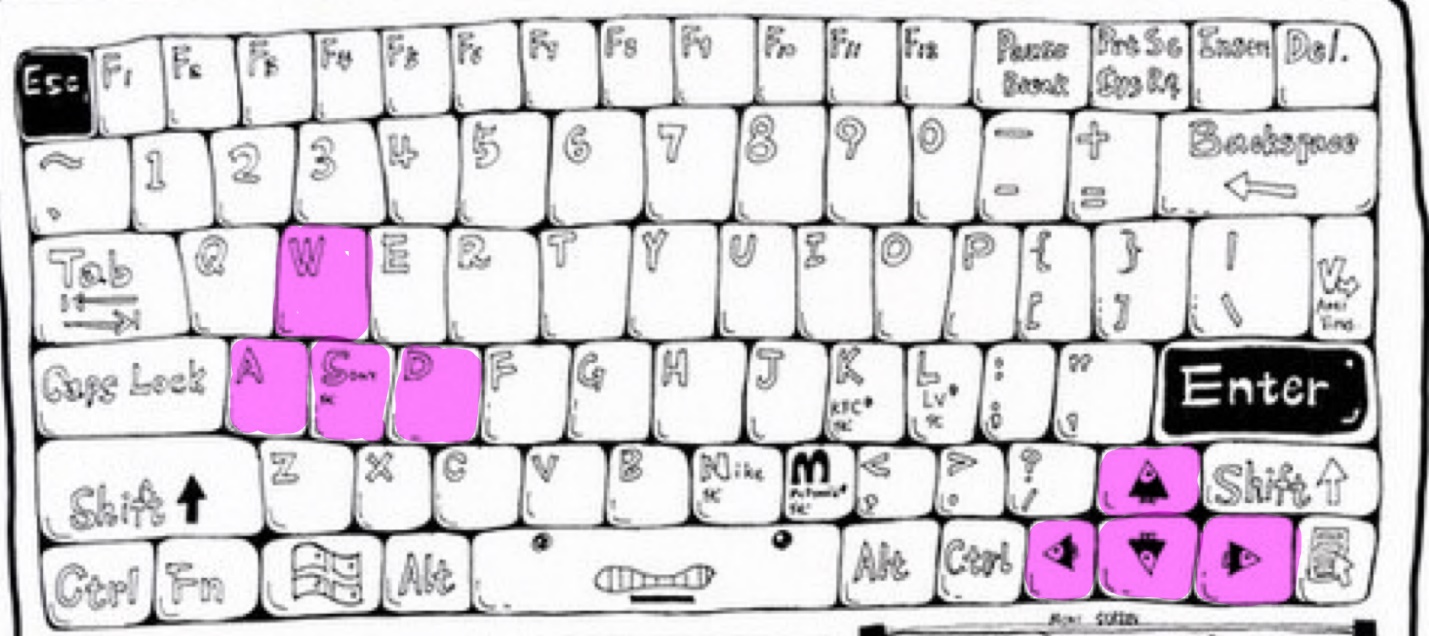 Esc F1 F2 F3 F4 F5 F6 F7 F8 F9 F10 F11 F12 Pause Break Prt Sc Sys Rq Insert Del.
~ 1 2 3 4 5 6 7 8 9 0 — - + = Backspace
Tab Q W E R T Y U I O P { [ } ] | \
Caps Lock A S D F G H J K KFC L LV : ; " , Enter
Shift Z X C V B Nike M < , > . ? / Shift
Ctrl Fn Alt Alt Ctrl